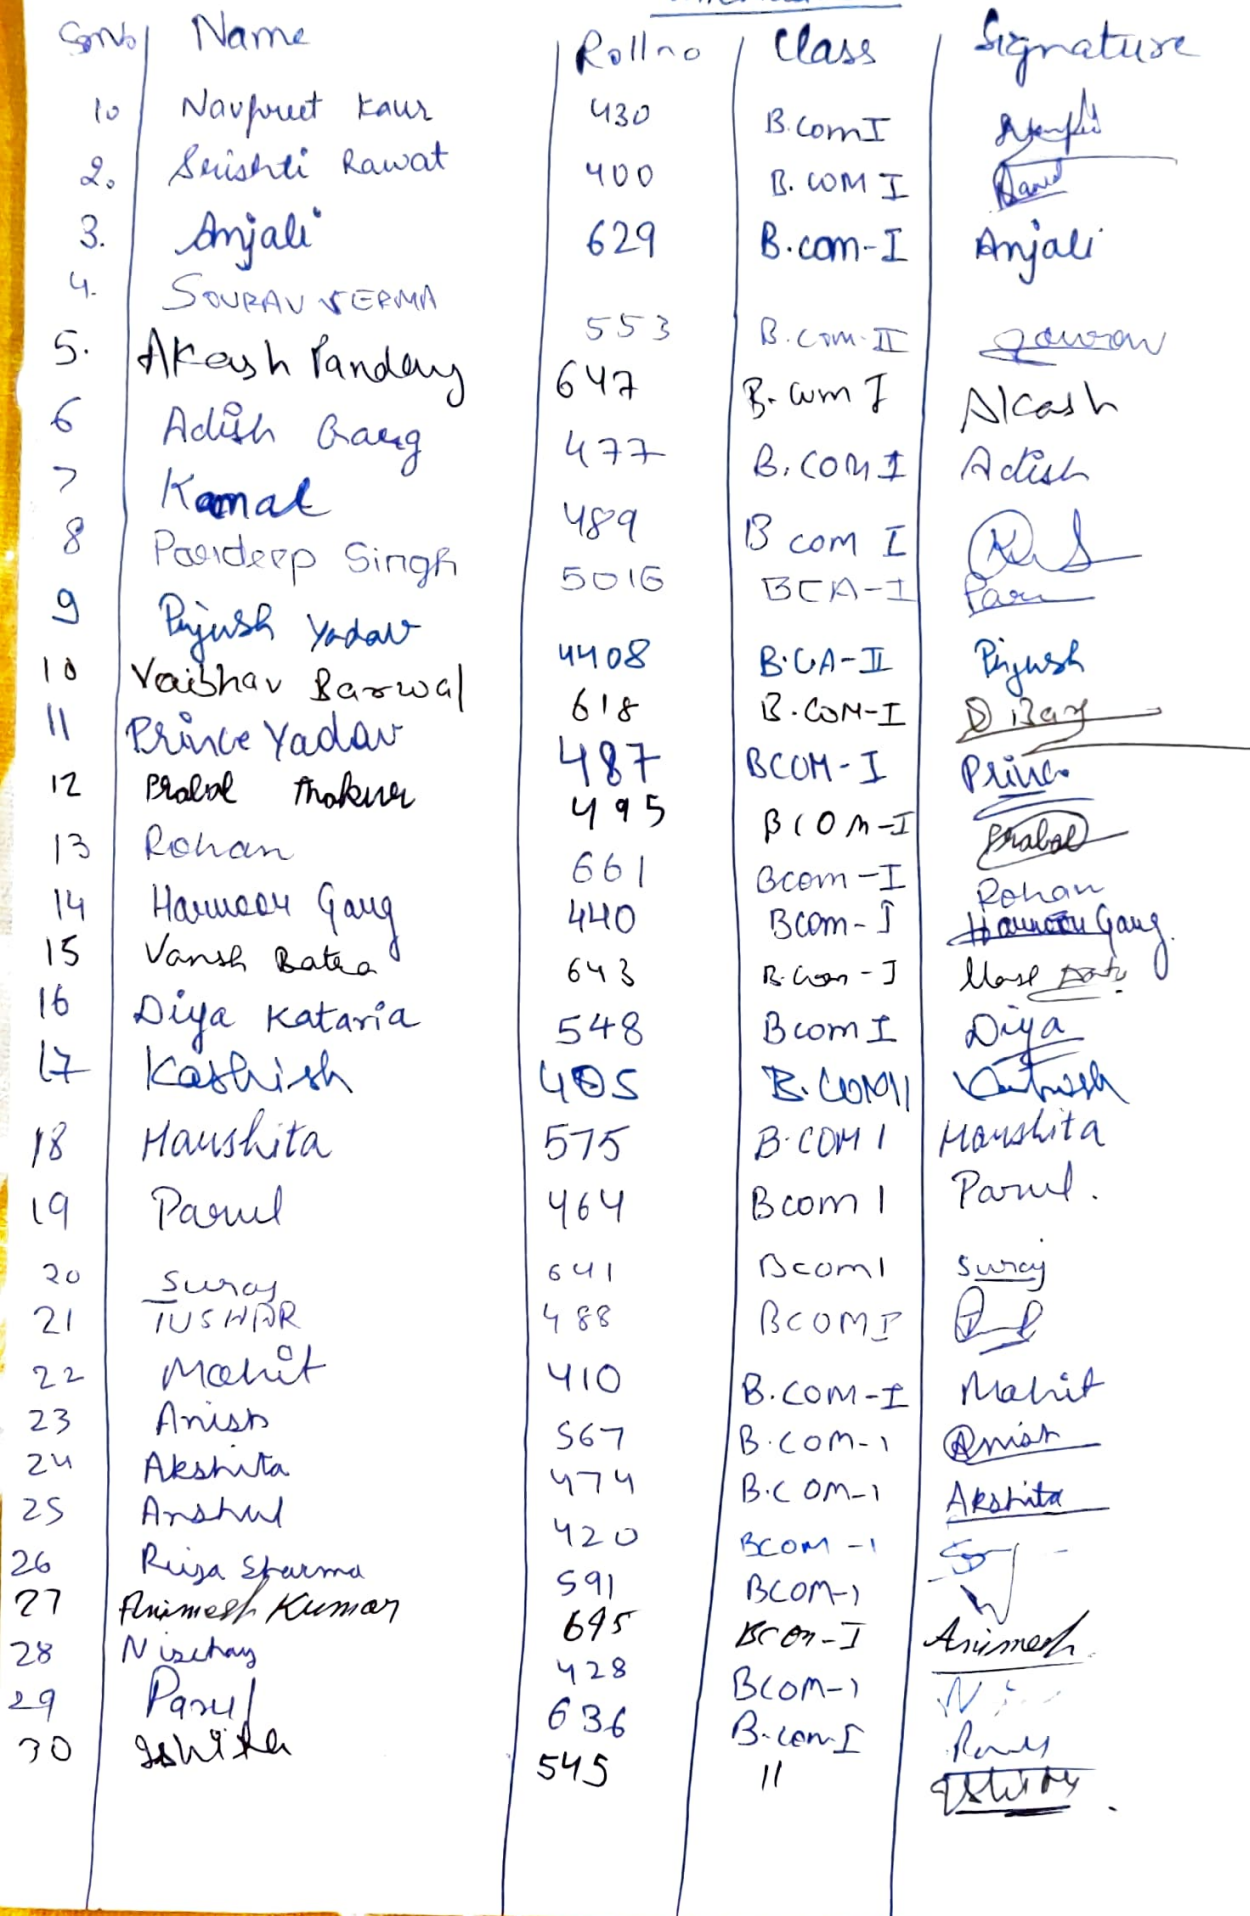 Sr No Name Rollno Class Signature
1. Navpreet Kaur 430 B.Com I
2. Srishti Rawat 400 B.COM I Rawat
3. Anjali 629 B.com-I Anjali
4. SOURAV VERMA 553 B.Com-II Sourav
5. Akash Pandey 647 B.com I Akash
6 Adish Garg 477 B.COM I Adish
7 Kamal 489 B com I
8 Pardeep Singh 5016 BCA-I Par
9 Piyush Yadav 4408 B.CA-II Piyush
10 Vaibhav Barwal 618 B.COM-I
11 Prince Yadav 487 BCOM-I Prince
12 Prabal Thakur 495 BCOM-I Prabal
13 Rohan 661 Bcom-I Rohan
14 Harnoor Garg 440 Bcom-I Harnoor Garg
15 Vansh Batra 643 B.Com-I
16 Diya Kataria 548 Bcom I Diya
17 Kashish 405 B.COM II Kashish
18 Harshita 575 B.COM I Harshita
19 Parul 464 Bcom I Parul.
20 Suraj 641 Bcom I Suraj
21 TUSHAR 488 BCOM I
22 Mohit 410 B.COM-I Mohit
23 Anish 567 B.COM-1 Anish
24 Akshita 474 B.COM-1 Akshita
25 Anshul 420 BCOM-1
26 Riya Sharma 591 BCOM-1
27 Animesh Kumar 695 BCom-I Animesh
28 Nischay 428 BCOM-1
29 Parul 636 B.com-I Parul
30 Ishita 545 11 Ishita